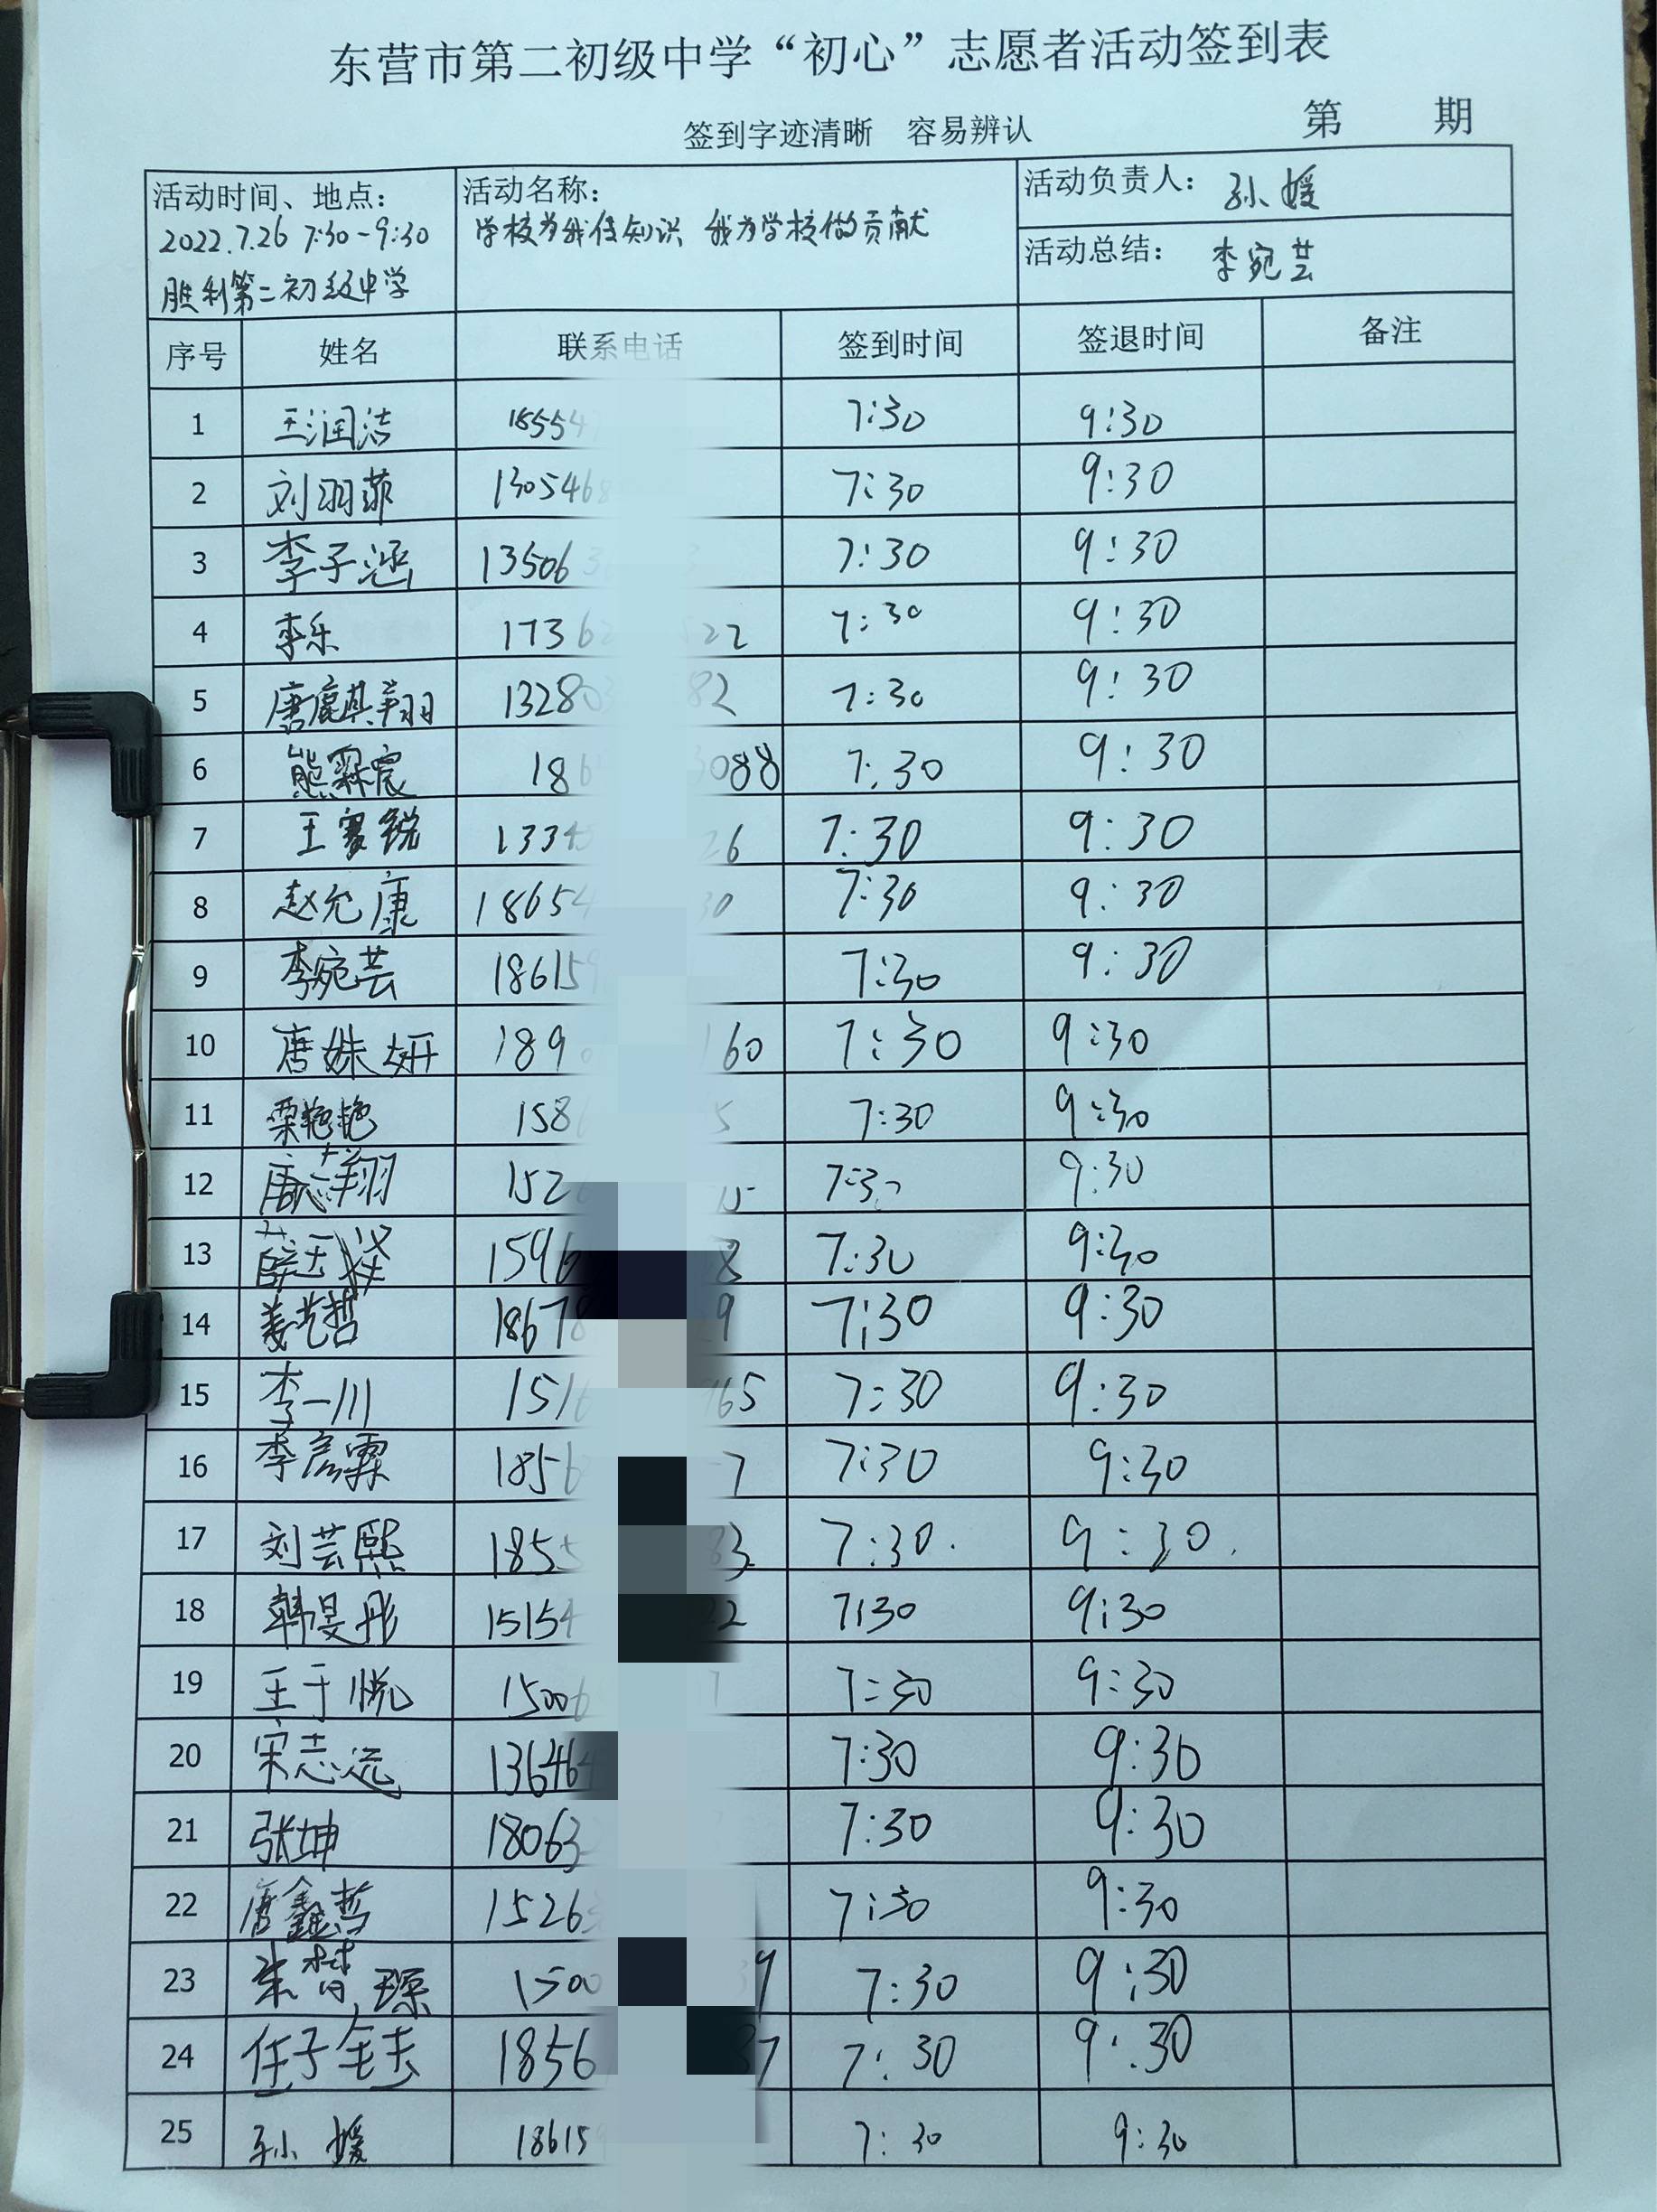 东营市第二初级中学“初心”志愿者活动签到表
签到字迹清晰 容易辨认 第 期
活动时间、地点：
2022.7.26 7:30-9:30
胜利第二初级中学
活动名称：
学校为我传知识 我为学校做贡献
活动负责人： 孙媛
活动总结： 李宛芸
序号 姓名 联系电话 签到时间 签退时间 备注
1 王润洁 18554 7:30 9:30
2 刘羽菲 130546 7:30 9:30
3 李子涵 13506 7:30 9:30
4 李乐 1736 22 7:30 9:30
5 唐麒翔 1328 82 7:30 9:30
6 熊霖宸 18 088 7:30 9:30
7 王 锐 1334 26 7:30 9:30
8 赵允康 18654 30 7:30 9:30
9 李宛芸 18615 7:30 9:30
10 唐姝妍 189 160 7:30 9:30
11 栗艳艳 158 5 7:30 9:30
12 唐志翔 152 15 7:30 9:30
13 薛玉 1596 8 7:30 9:30
14 姜艺哲 18678 9 7:30 9:30
15 李一川 151 65 7:30 9:30
16 李彦霖 1856 7 7:30 9:30
17 刘芸熙 1855 83 7:30. 9:30.
18 韩旻彤 15154 2 7:30 9:30
19 王于悦 15006 7 7:30 9:30
20 宋志远 13646 7:30 9:30
21 张坤 18063 7:30 9:30
22 唐鑫哲 15263 7:30 9:30
23 朱 琼 1500 9 7:30 9:30
24 任子 1856 37 7:30 9:30
25 孙媛 18615 7:30 9:30